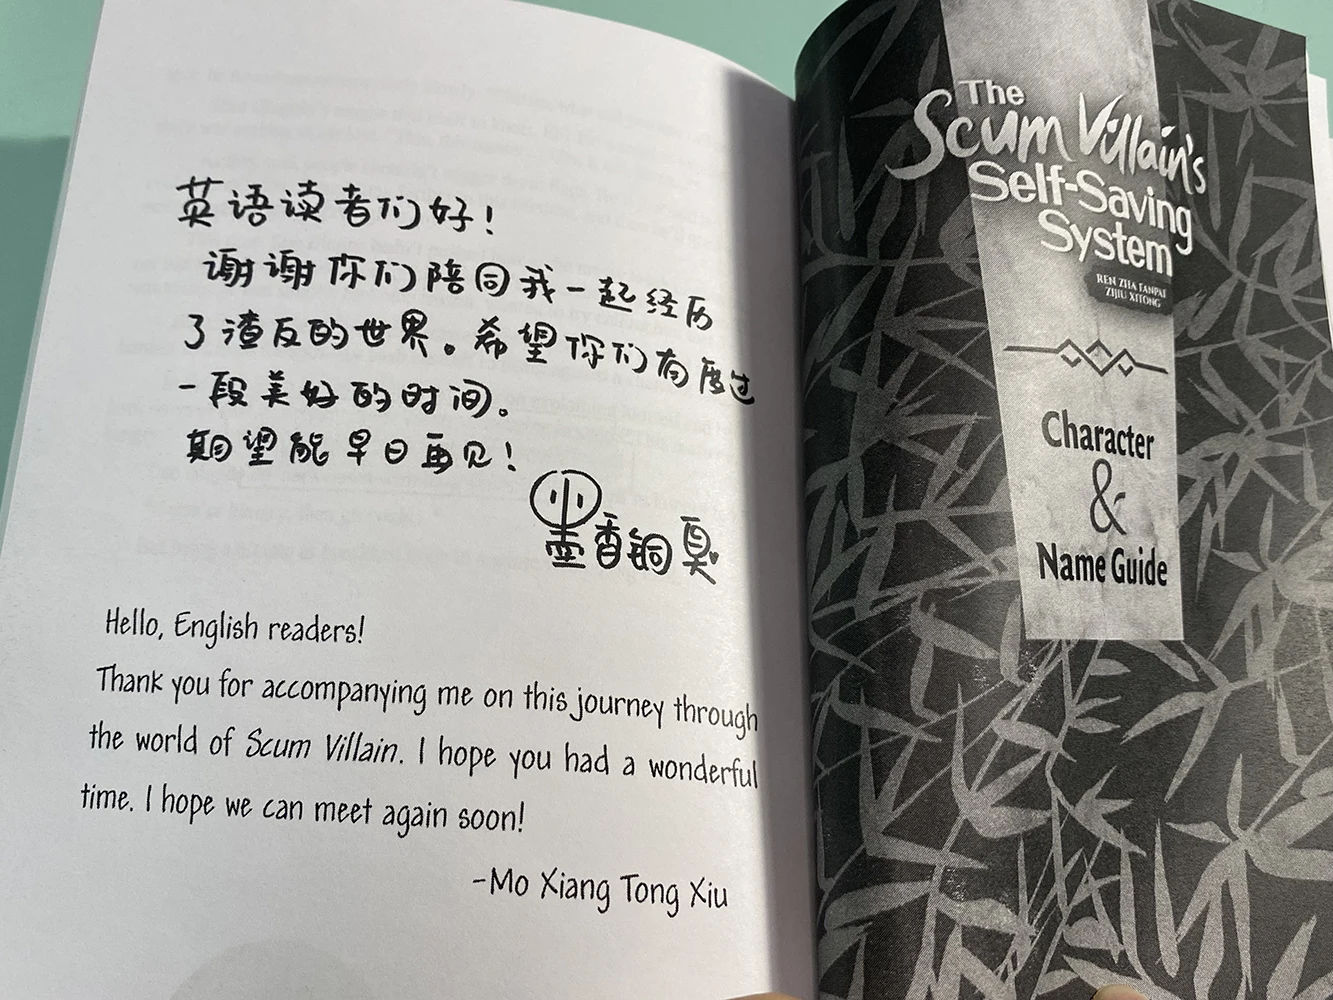 英语读者们好！
谢谢你们陪同我一起经历
了渣反的世界。希望你们有度过
一段美好的时间。
期望能早日再见！
墨香铜臭
Hello, English readers!
Thank you for accompanying me on this journey through
the world of Scum Villain. I hope you had a wonderful
time. I hope we can meet again soon!
-Mo Xiang Tong Xiu
The
Scum Villain's
Self-Saving
System
REN ZHA FANPAI
ZIJIU XITONG
Character
&
Name Guide